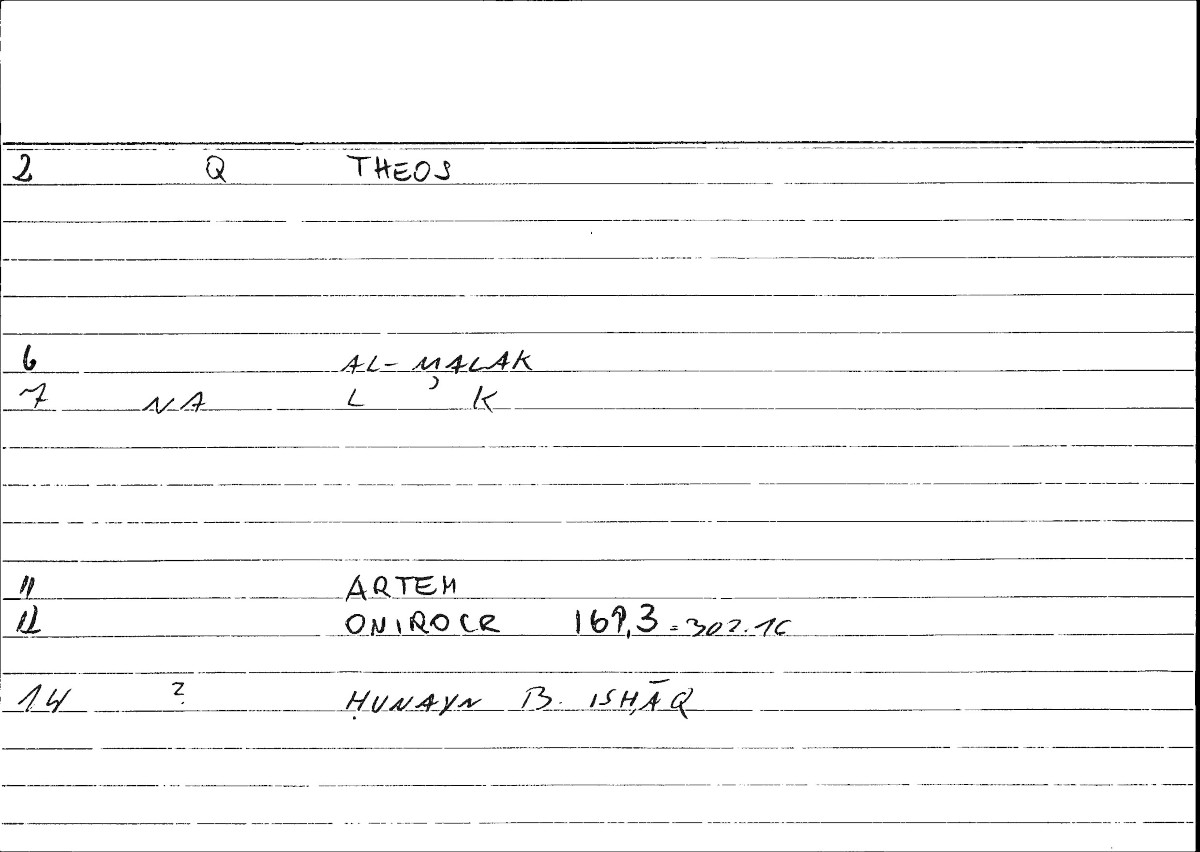 2 Q THEOS
6 AL-MALAK
7 NA L ʾ K
11 ARTEM
12 ONIROCR 169,3 = 302.16
14 ? ḤUNAYN B. ISḤĀQ